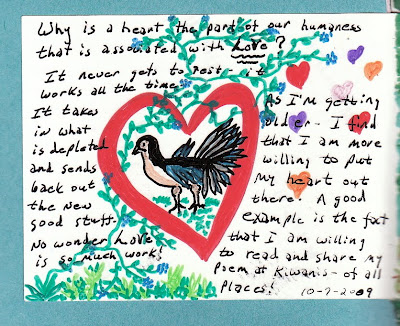 Why is a heart the part of our humaness
that is associated with Love?
It never gets to rest - it
works all the time.
It takes
in what
is depleted
and sends
back out
the new
good stuff.
No wonder Love
is so much work!
As I'm getting
older - I find
that I am more
willing to put
my heart out
there. A good
example is the fact
that I am willing
to read and share my
Poem at Kiwanis - of all
Places!
10-7-2009